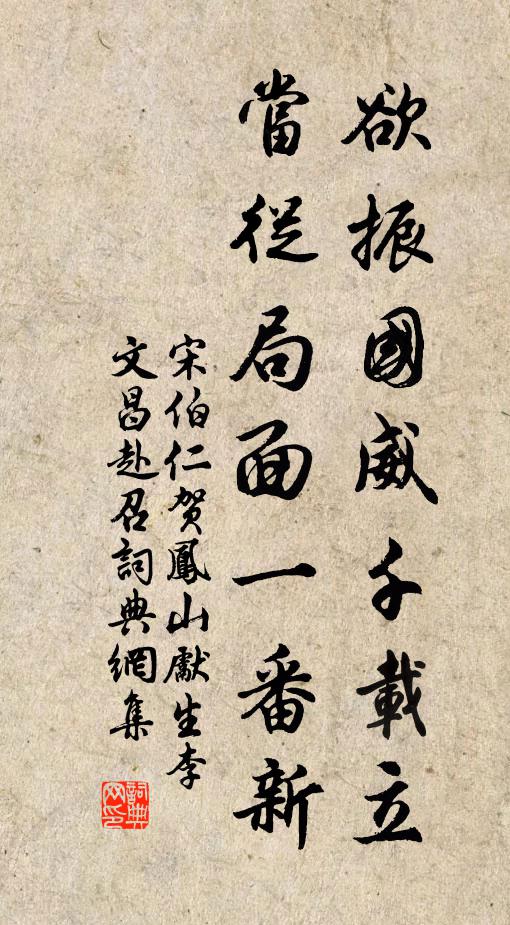 欲振國威千載立
當從局面一番新
宋伯仁賀鳳山獻生李
文昌赴召詞典網集
詞典网印